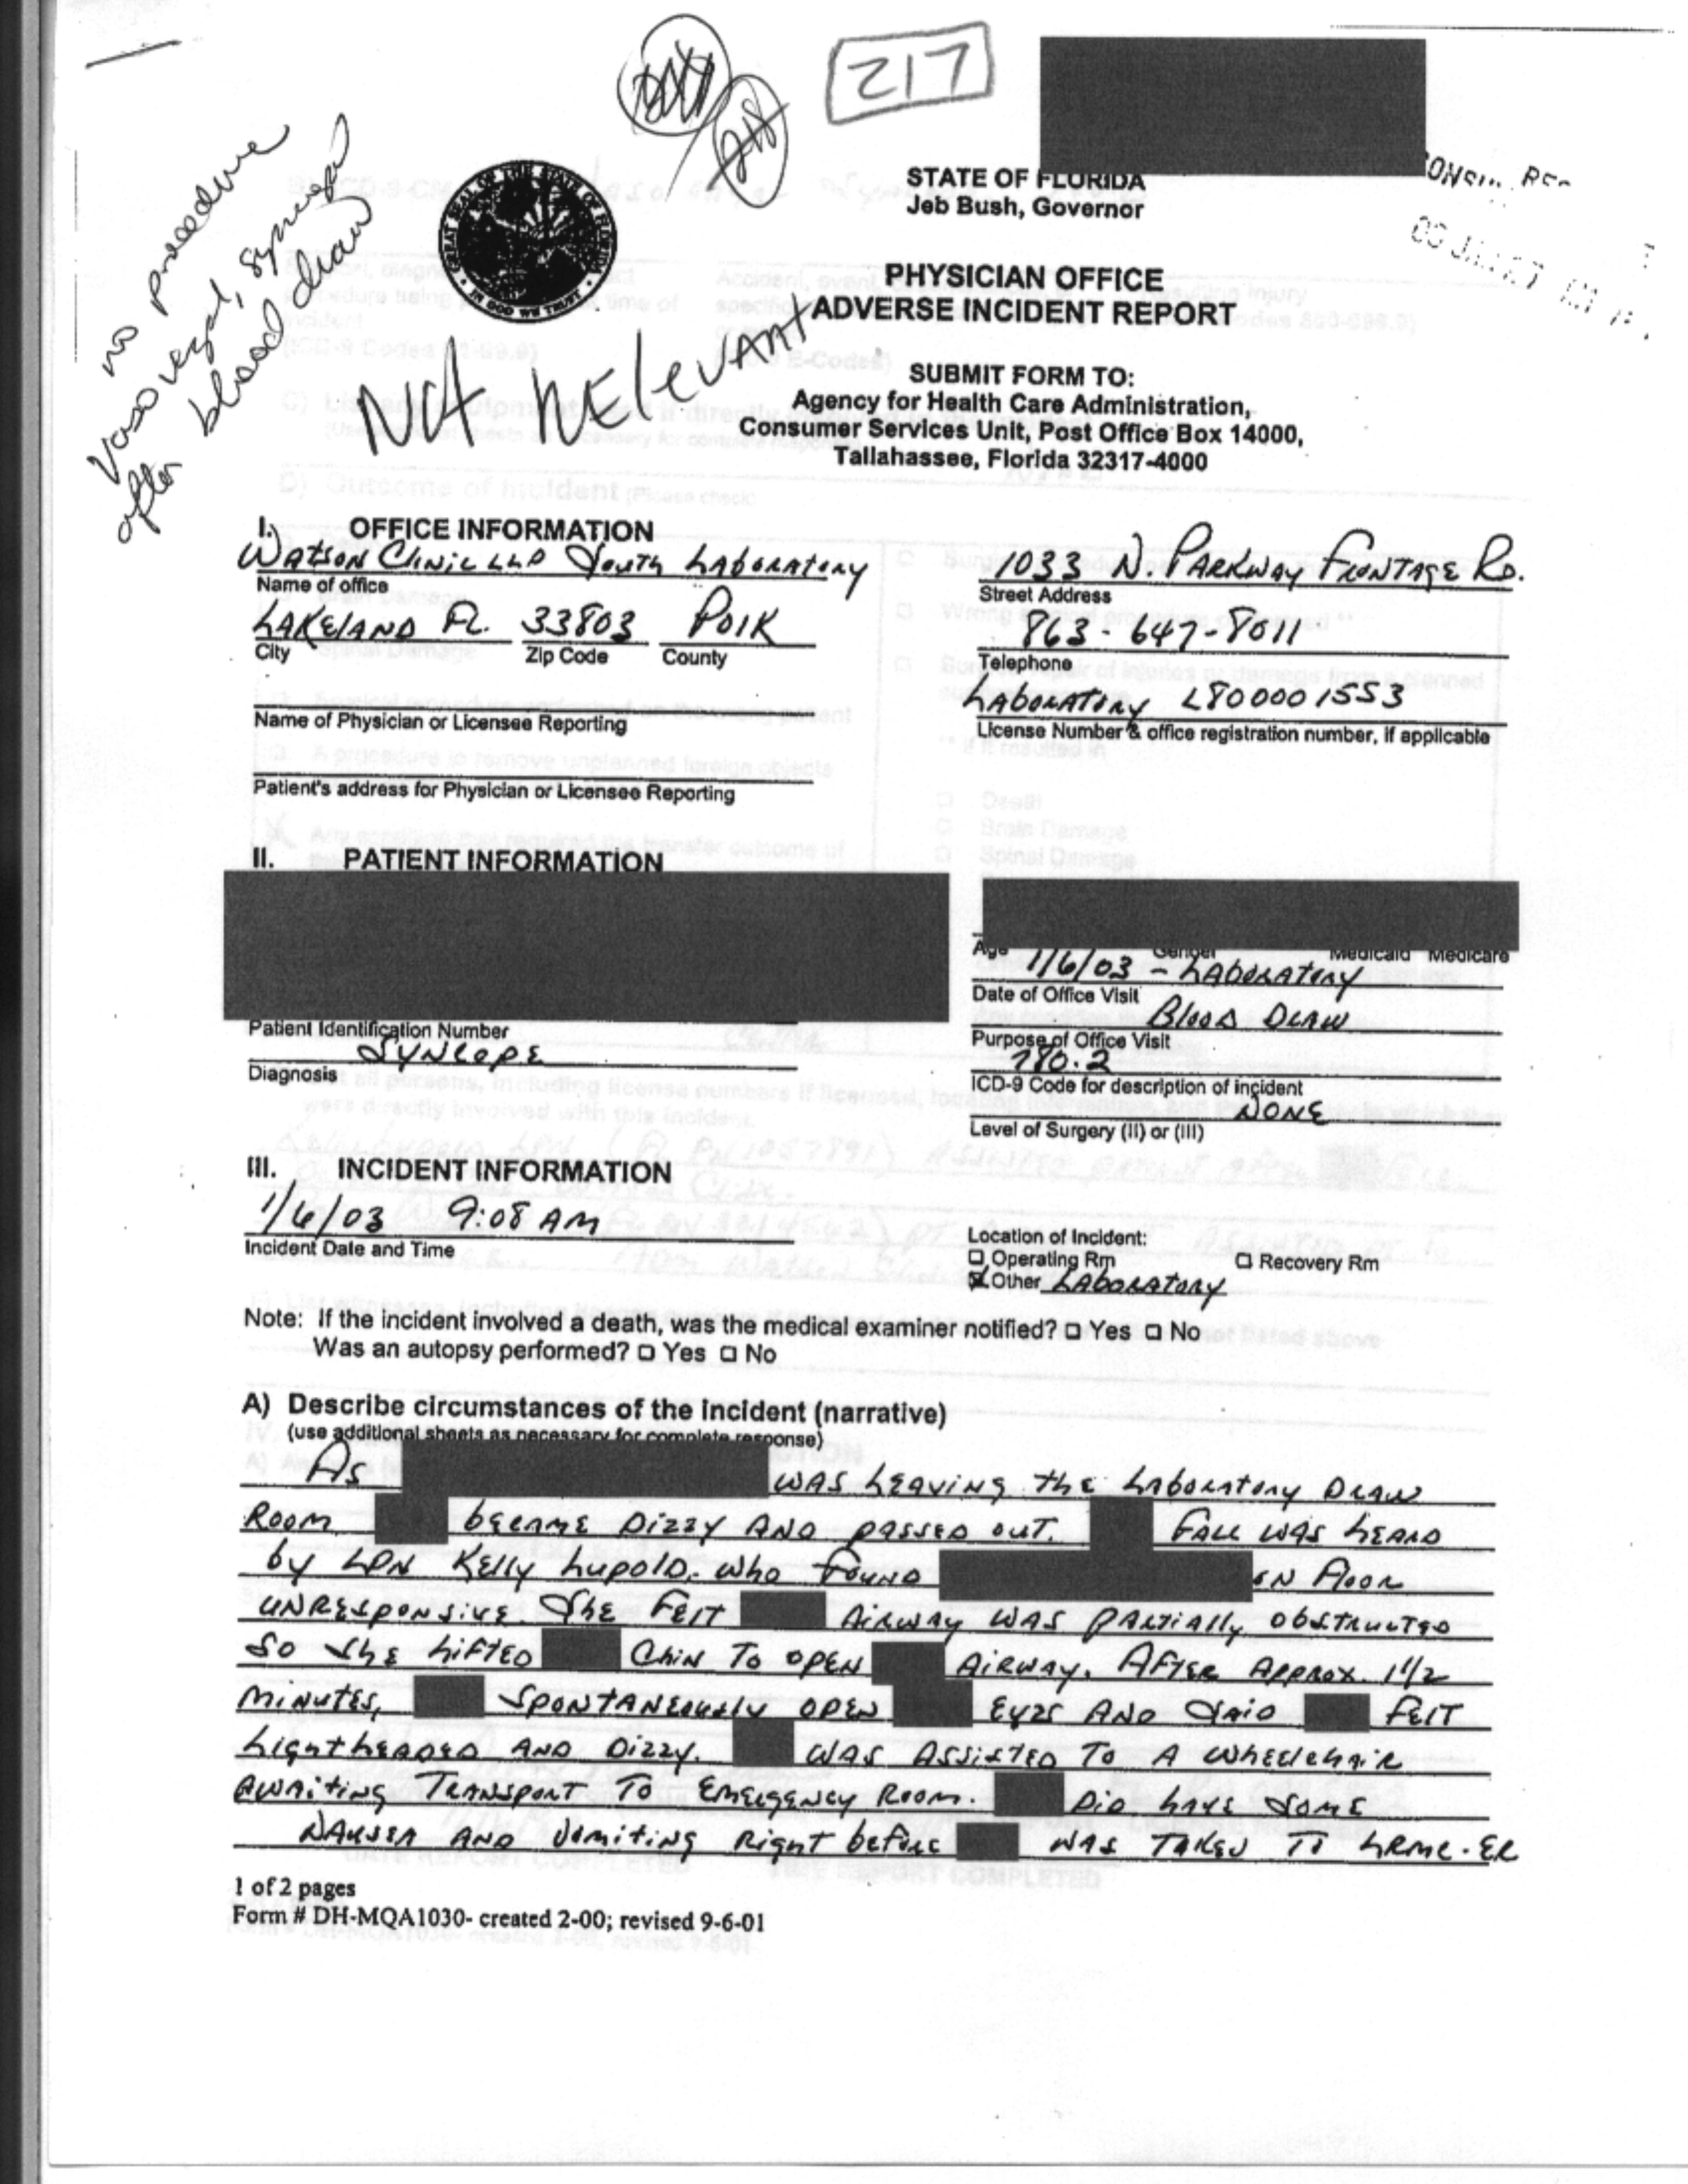 217
no procedure
vasovagal, syncope
after blood draw
Not Relevant
GREAT SEAL OF THE STATE OF FLORIDA
IN GOD WE TRUST
STATE OF FLORIDA
Jeb Bush, Governor
PHYSICIAN OFFICE
ADVERSE INCIDENT REPORT
SUBMIT FORM TO:
Agency for Health Care Administration,
Consumer Services Unit, Post Office Box 14000,
Tallahassee, Florida 32317-4000
I. OFFICE INFORMATION
Watson Clinic LLP South Laboratory
Name of office
1033 N. Parkway Frontage Rd.
Street Address
Lakeland Fl. 33803 Polk
City Zip Code County
863-647-8011
Telephone
Laboratory L800001553
Name of Physician or Licensee Reporting
License Number & office registration number, if applicable
Patient's address for Physician or Licensee Reporting
II. PATIENT INFORMATION
Age Gender Medicaid Medicare
1/6/03 - Laboratory
Date of Office Visit
Patient Identification Number
Blood Draw
Purpose of Office Visit
Syncope
Diagnosis
780.2
ICD-9 Code for description of incident
None
Level of Surgery (II) or (III)
III. INCIDENT INFORMATION
1/6/03 9:08 AM
Incident Date and Time
Location of Incident:
Operating Rm Recovery Rm
Other Laboratory
Note: If the incident involved a death, was the medical examiner notified? Yes No
Was an autopsy performed? Yes No
A) Describe circumstances of the incident (narrative)
(use additional sheets as necessary for complete response)
As was leaving the Laboratory Draw
Room became dizzy and passed out. Fall was heard
by LPN Kelly Lupold, who found on floor
unresponsive. She felt airway was partially obstructed
so she lifted chin to open airway. After approx 1 1/2
minutes, spontaneously open eyes and said felt
lightheaded and dizzy. was assisted to a wheelchair
awaiting transport to emergency room. Did have some
nausea and vomiting right before was taken to LRMC-ER
1 of 2 pages
Form # DH-MQA1030- created 2-00; revised 9-6-01